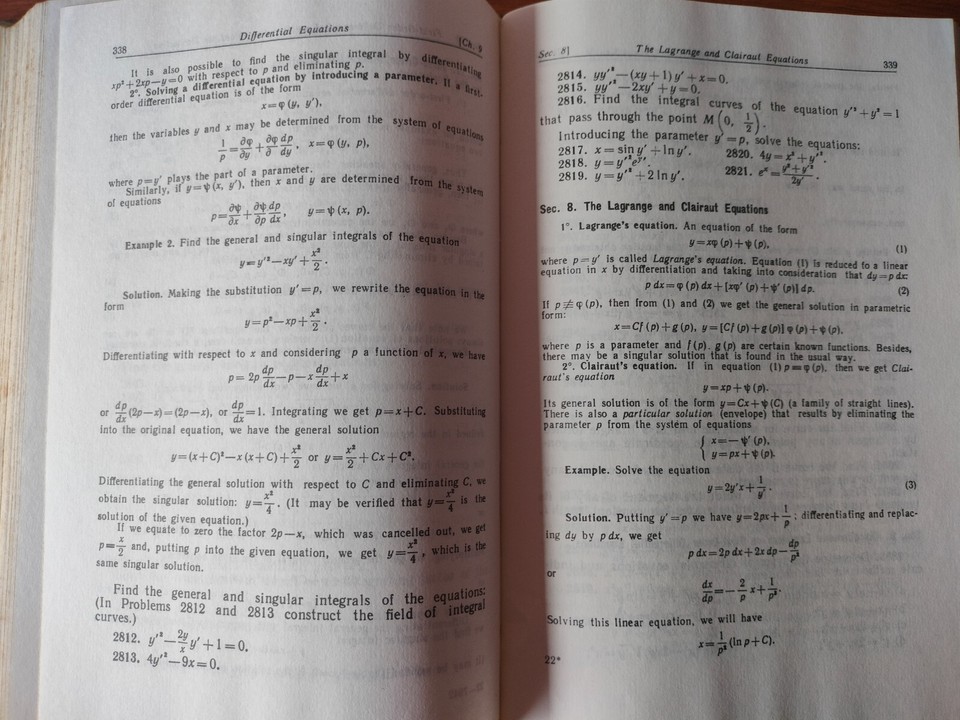 338
Differential Equations
[Ch. 9
It is also possible to find the singular integral by differentiating
xp² + 2xp − y = 0 with respect to p and eliminating p.
2°. Solving a differential equation by introducing a parameter. If a first-
order differential equation is of the form
x = φ (y, y′),
then the variables y and x may be determined from the system of equations
1/p = ∂φ/∂y + ∂φ/∂ dp/dy, x = φ (y, p),
where p = y′ plays the part of a parameter.
Similarly, if y = ψ (x, y′), then x and y are determined from the system
of equations
p = ∂ψ/∂x + ∂ψ/∂p dp/dx, y = ψ (x, p).
Example 2. Find the general and singular integrals of the equation
y = y′² − xy′ + x²/2.
Solution. Making the substitution y′ = p, we rewrite the equation in the
form
y = p² − xp + x²/2.
Differentiating with respect to x and considering p a function of x, we have
p = 2p dp/dx − p − x dp/dx + x
or dp/dx (2p − x) = (2p − x), or dp/dx = 1. Integrating we get p = x + C. Substituting
into the original equation, we have the general solution
y = (x + C)² − x (x + C) + x²/2 or y = x²/2 + Cx + C².
Differentiating the general solution with respect to C and eliminating C, we
obtain the singular solution: y = x²/4. (It may be verified that y = x²/4 is the
solution of the given equation.)
If we equate to zero the factor 2p − x, which was cancelled out, we get
p = x/2 and, putting p into the given equation, we get y = x²/4, which is the
same singular solution.
Find the general and singular integrals of the equations:
(In Problems 2812 and 2813 construct the field of integral
curves.)
2812. y′² − 2y/x y′ + 1 = 0.
2813. 4y′² − 9x = 0.
Sec. 8]
The Lagrange and Clairaut Equations
339
2814. yy′² − (xy + 1) y′ + x = 0.
2815. yy′² − 2xy′ + y = 0.
2816. Find the integral curves of the equation y′² + y² = 1
that pass through the point M (0, 1/2).
Introducing the parameter y′ = p, solve the equations:
2817. x = sin y′ + ln y′.
2820. 4y = x² + y′².
2818. y = y′²eʸ′.
2821. eˣ = (y² + y′²)/2y′.
2819. y = y′² + 2 ln y′.
Sec. 8. The Lagrange and Clairaut Equations
1°. Lagrange's equation. An equation of the form
y = xφ (p) + ψ (p), (1)
where p = y′ is called Lagrange's equation. Equation (1) is reduced to a linear
equation in x by differentiation and taking into consideration that dy = p dx:
p dx = φ (p) dx + [xφ′ (p) + ψ′ (p)] dp. (2)
If p ≢ φ (p), then from (1) and (2) we get the general solution in parametric
form:
x = Cf (p) + g (p), y = [Cf (p) + g (p)] φ (p) + ψ (p),
where p is a parameter and f (p), g (p) are certain known functions. Besides,
there may be a singular solution that is found in the usual way.
2°. Clairaut's equation. If in equation (1) p ≡ φ (p), then we get Clai-
raut's equation
y = xp + ψ (p).
Its general solution is of the form y = Cx + ψ (C) (a family of straight lines).
There is also a particular solution (envelope) that results by eliminating the
parameter p from the system of equations
{ x = − ψ′ (p),
{ y = px + ψ (p).
Example. Solve the equation
y = 2y′x + 1/y′. (3)
Solution. Putting y′ = p we have y = 2px + 1/p; differentiating and replac-
ing dy by p dx, we get
p dx = 2p dx + 2x dp − dp/p²
or
dx/dp = − 2/p x + 1/p³.
Solving this linear equation, we will have
x = 1/p² (ln p + C).
22*